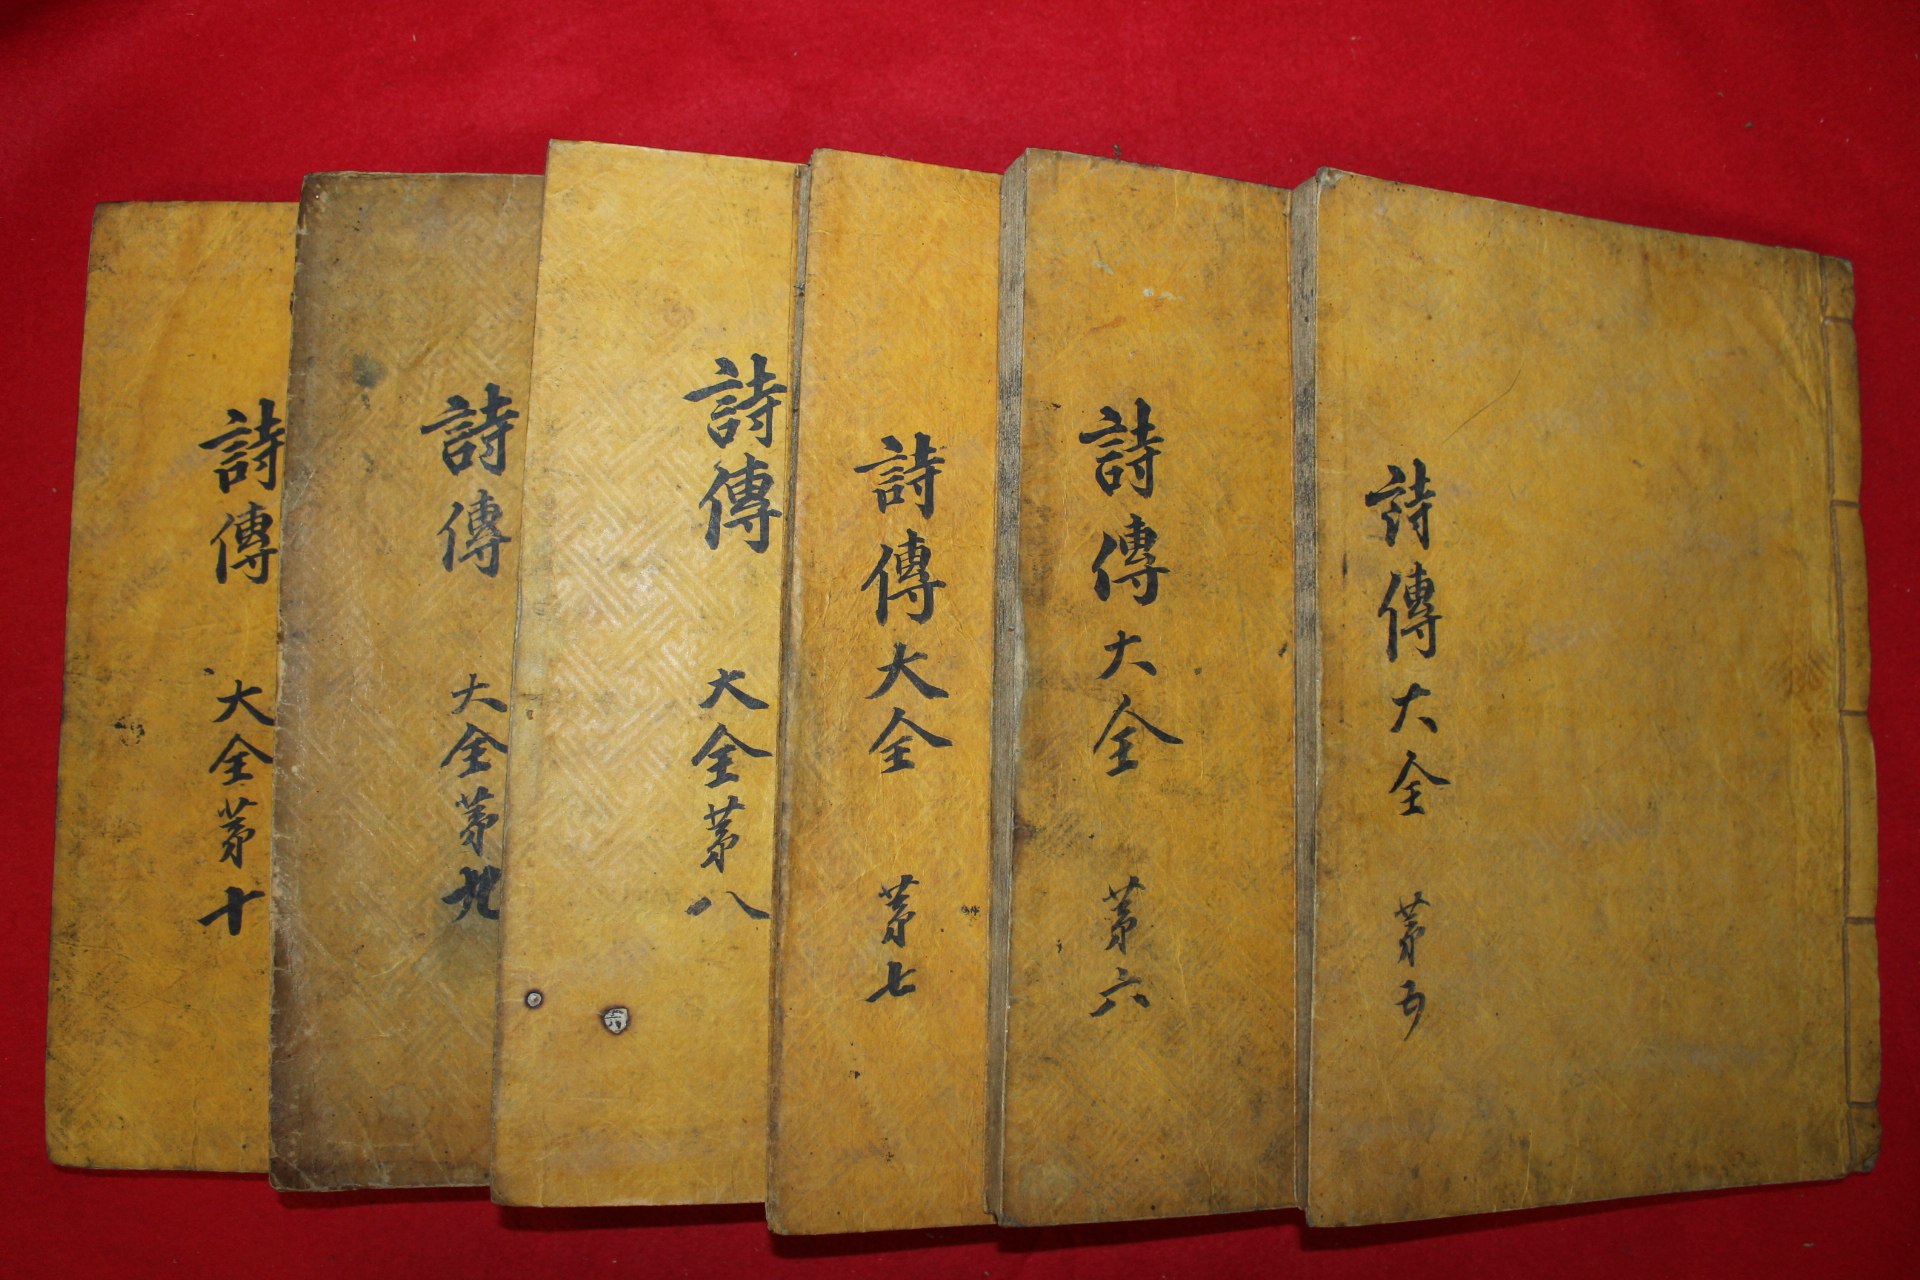 詩傳大全 第五
詩傳大全 第六
詩傳大全 第七
詩傳 大全第八
詩傳 大全第九
詩傳 大全第十